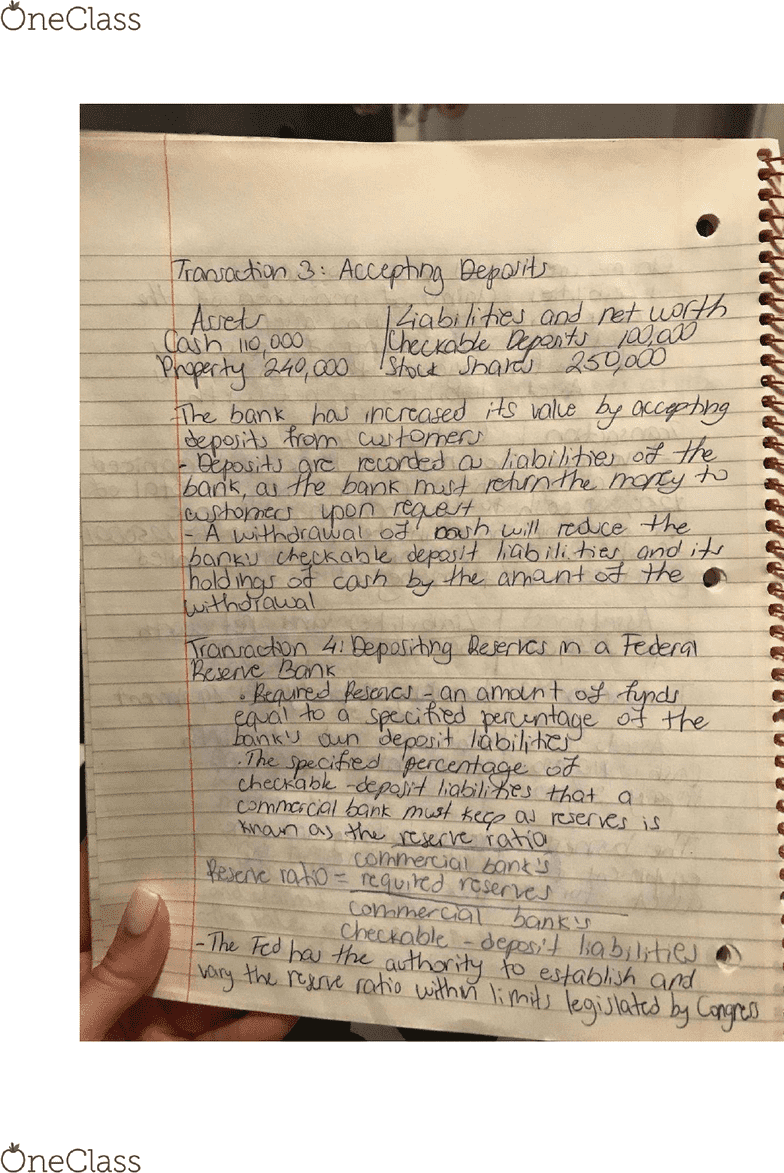 OneClass
Transaction 3: Accepting Deposits
Assets | Liabilities and net worth
Cash 110,000 | Checkable Deposits 100,000
Property 240,000 | Stock Shares 250,000
The bank has increased its value by accepting
deposits from customers
- Deposits are recorded as liabilities of the
bank, as the bank must return the money to
customers upon request
- A withdrawal of cash will reduce the
bank's checkable deposit liabilities and its
holdings of cash by the amount of the
withdrawal
Transaction 4: Depositing Reserves in a Federal
Reserve Bank
• Required Reserves - an amount of funds
equal to a specified percentage of the
bank's own deposit liabilities
• The specified percentage of
checkable-deposit liabilities that a
commercial bank must keep as reserves is
known as the reserve ratio
commercial bank's
Reserve ratio = required reserves
commercial bank's
checkable-deposit liabilities
- The Fed has the authority to establish and
vary the reserve ratio within limits legislated by Congress
OneClass